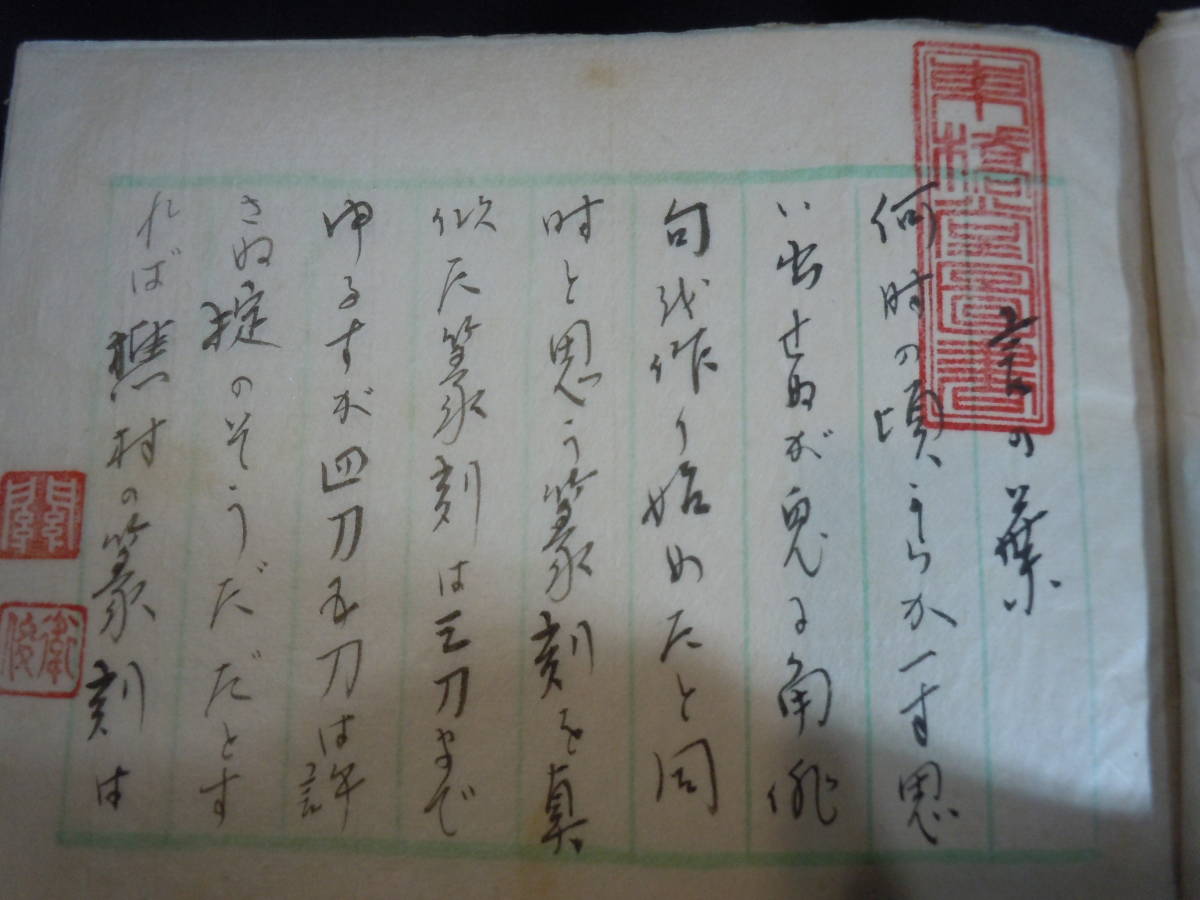 言の葉
何時の頃からか一寸思
い出せぬが兎に角俳
句を作り始めたと同
時と思う篆刻を真
似た篆刻は三刀まで
ゆるすが四刀五刀は許
さぬ掟のそうだだとす
れば樵村の篆刻は